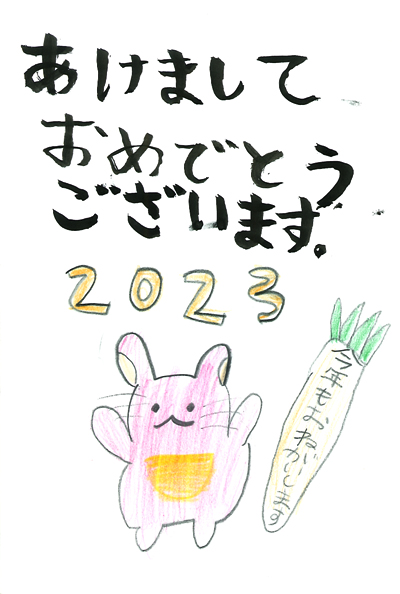 あけまして
おめでとう
ございます。
2023
今年もおねがいします